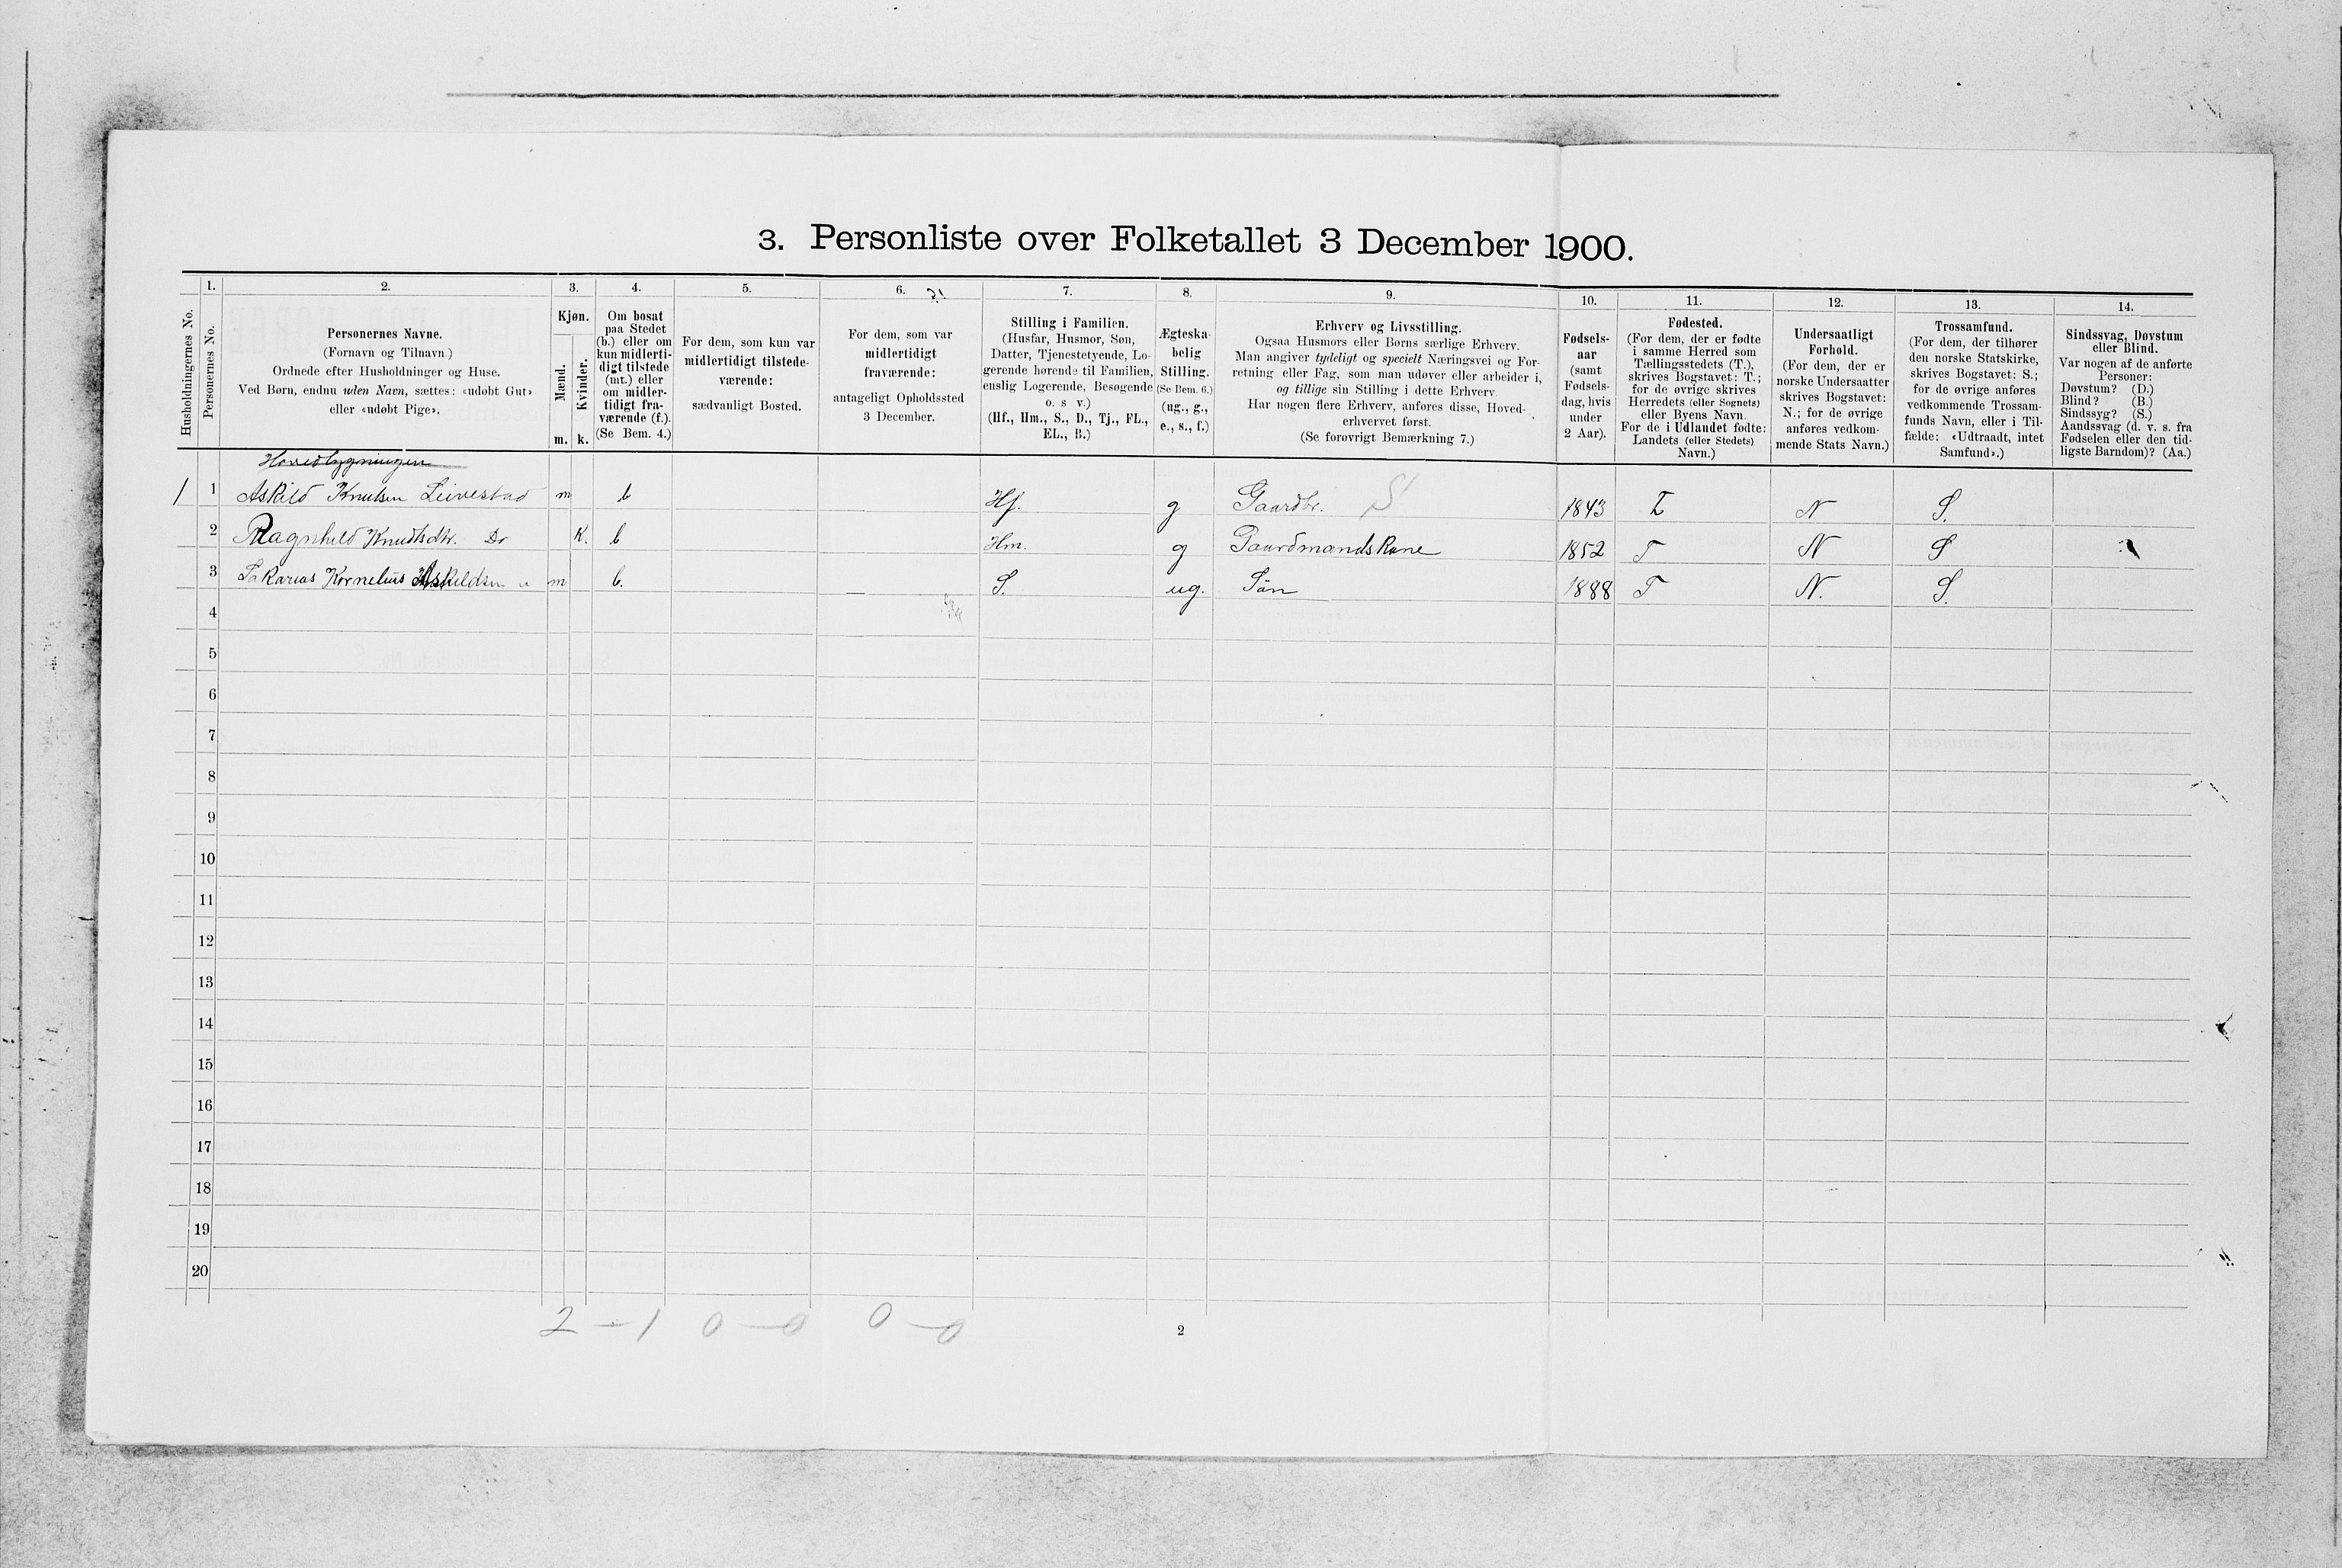 3. Personliste over Folketallet 3 December 1900.
Husholdningernes No.
1.
Personernes No.
2.
Personernes Navne.
(Fornavn og Tilnavn)
Ordnede efter Husholdninger og Huse.
Ved Børn, endnu uden Navn, sættes: «udøbt Gut»
eller «udøbt Pige».
3.
Kjøn.
Mænd.
Kvinder.
m.
k.
4.
Om bosat
paa Stedet
(b.) eller om
kun midlerti-
digt tilstede
(mt.) eller
om midler-
tidigt fra-
værende (f.).
(Se Bem. 4.)
5.
For dem, som kun var
midlertidigt tilstede-
værende:
sædvanligt Bosted.
6.
For dem, som var
midlertidigt
fraværende:
antageligt Opholdssted
3 December.
7.
Stilling i Familien.
(Husfar, Husmor, Søn,
Datter, Tjenestetyende, Lo-
gerende hørende til Familien,
enslig Logerende, Besøgende
o. s v.)
(Hf., Hm., S., D., Tj., FL.,
EL., B.)
8.
Ægteska-
belig
Stilling.
(Se Bem. 6.)
(ug., g.,
e., s., f.)
9.
Erhverv og Livsstilling.
Ogsaa Husmors eller Børns særlige Erhverv.
Man angiver tydeligt og specielt Næringsvei og For-
retning eller Fag, som man udøver eller arbeider i,
og tillige sin Stilling i dette Erhverv.
Har nogen flere Erhverv, anføres disse, Hoved-
erhvervet først.
(Se forøvrigt Bemærkning 7.)
10.
Fødsels-
aar
(samt
Fødsels-
dag, hvis
under
2 Aar).
11.
Fødested.
(For dem, der er fødte
i samme Herred som
Tællingsstedets (T.),
skrives Bogstavet: T.;
for de øvrige skrives
Herredets (eller Sognets)
eller Byens Navn.
For de i Udlandet fødte:
Landets (eller Stedets)
Navn.)
12.
Undersaatligt
Forhold.
(For dem, der er
norske Undersaatter
skrives Bogstavet:
N.; for de øvrige
anføres vedkom-
mende Stats Navn.)
13.
Trossamfund.
(For dem, der tilhører
den norske Statskirke,
skrives Bogstavet: S.;
for de øvrige anføres
vedkommende Trossam-
funds Navn, eller i Til-
fælde: «Udtraadt, intet
Samfund».)
14.
Sindssvag, Døvstum
eller Blind.
Var nogen af de anførte
Personer:
Døvstum? (D.)
Blind? (B.)
Sindssyg? (S.)
Aandssvag (d. v. s. fra
Fødselen eller den tid-
ligste Barndom)? (Aa.)
Hovedbygningen
1 1 Askild Knutsen Leivestad m b Hf. g Gaardbr. S 1843 T N S.
2 Ragnhild Knudtsdtr. Do K. b Hm. g Gaardmandskone 1852 T N S
3 Sakarias Kornelius Askildsen m b. S. ug. Søn 1888 T N. S.
4
5
6
7
8
9
10
11
12
13
14
15
16
17
18
19
20
2 – 1 0 – 0 0 – 0
2